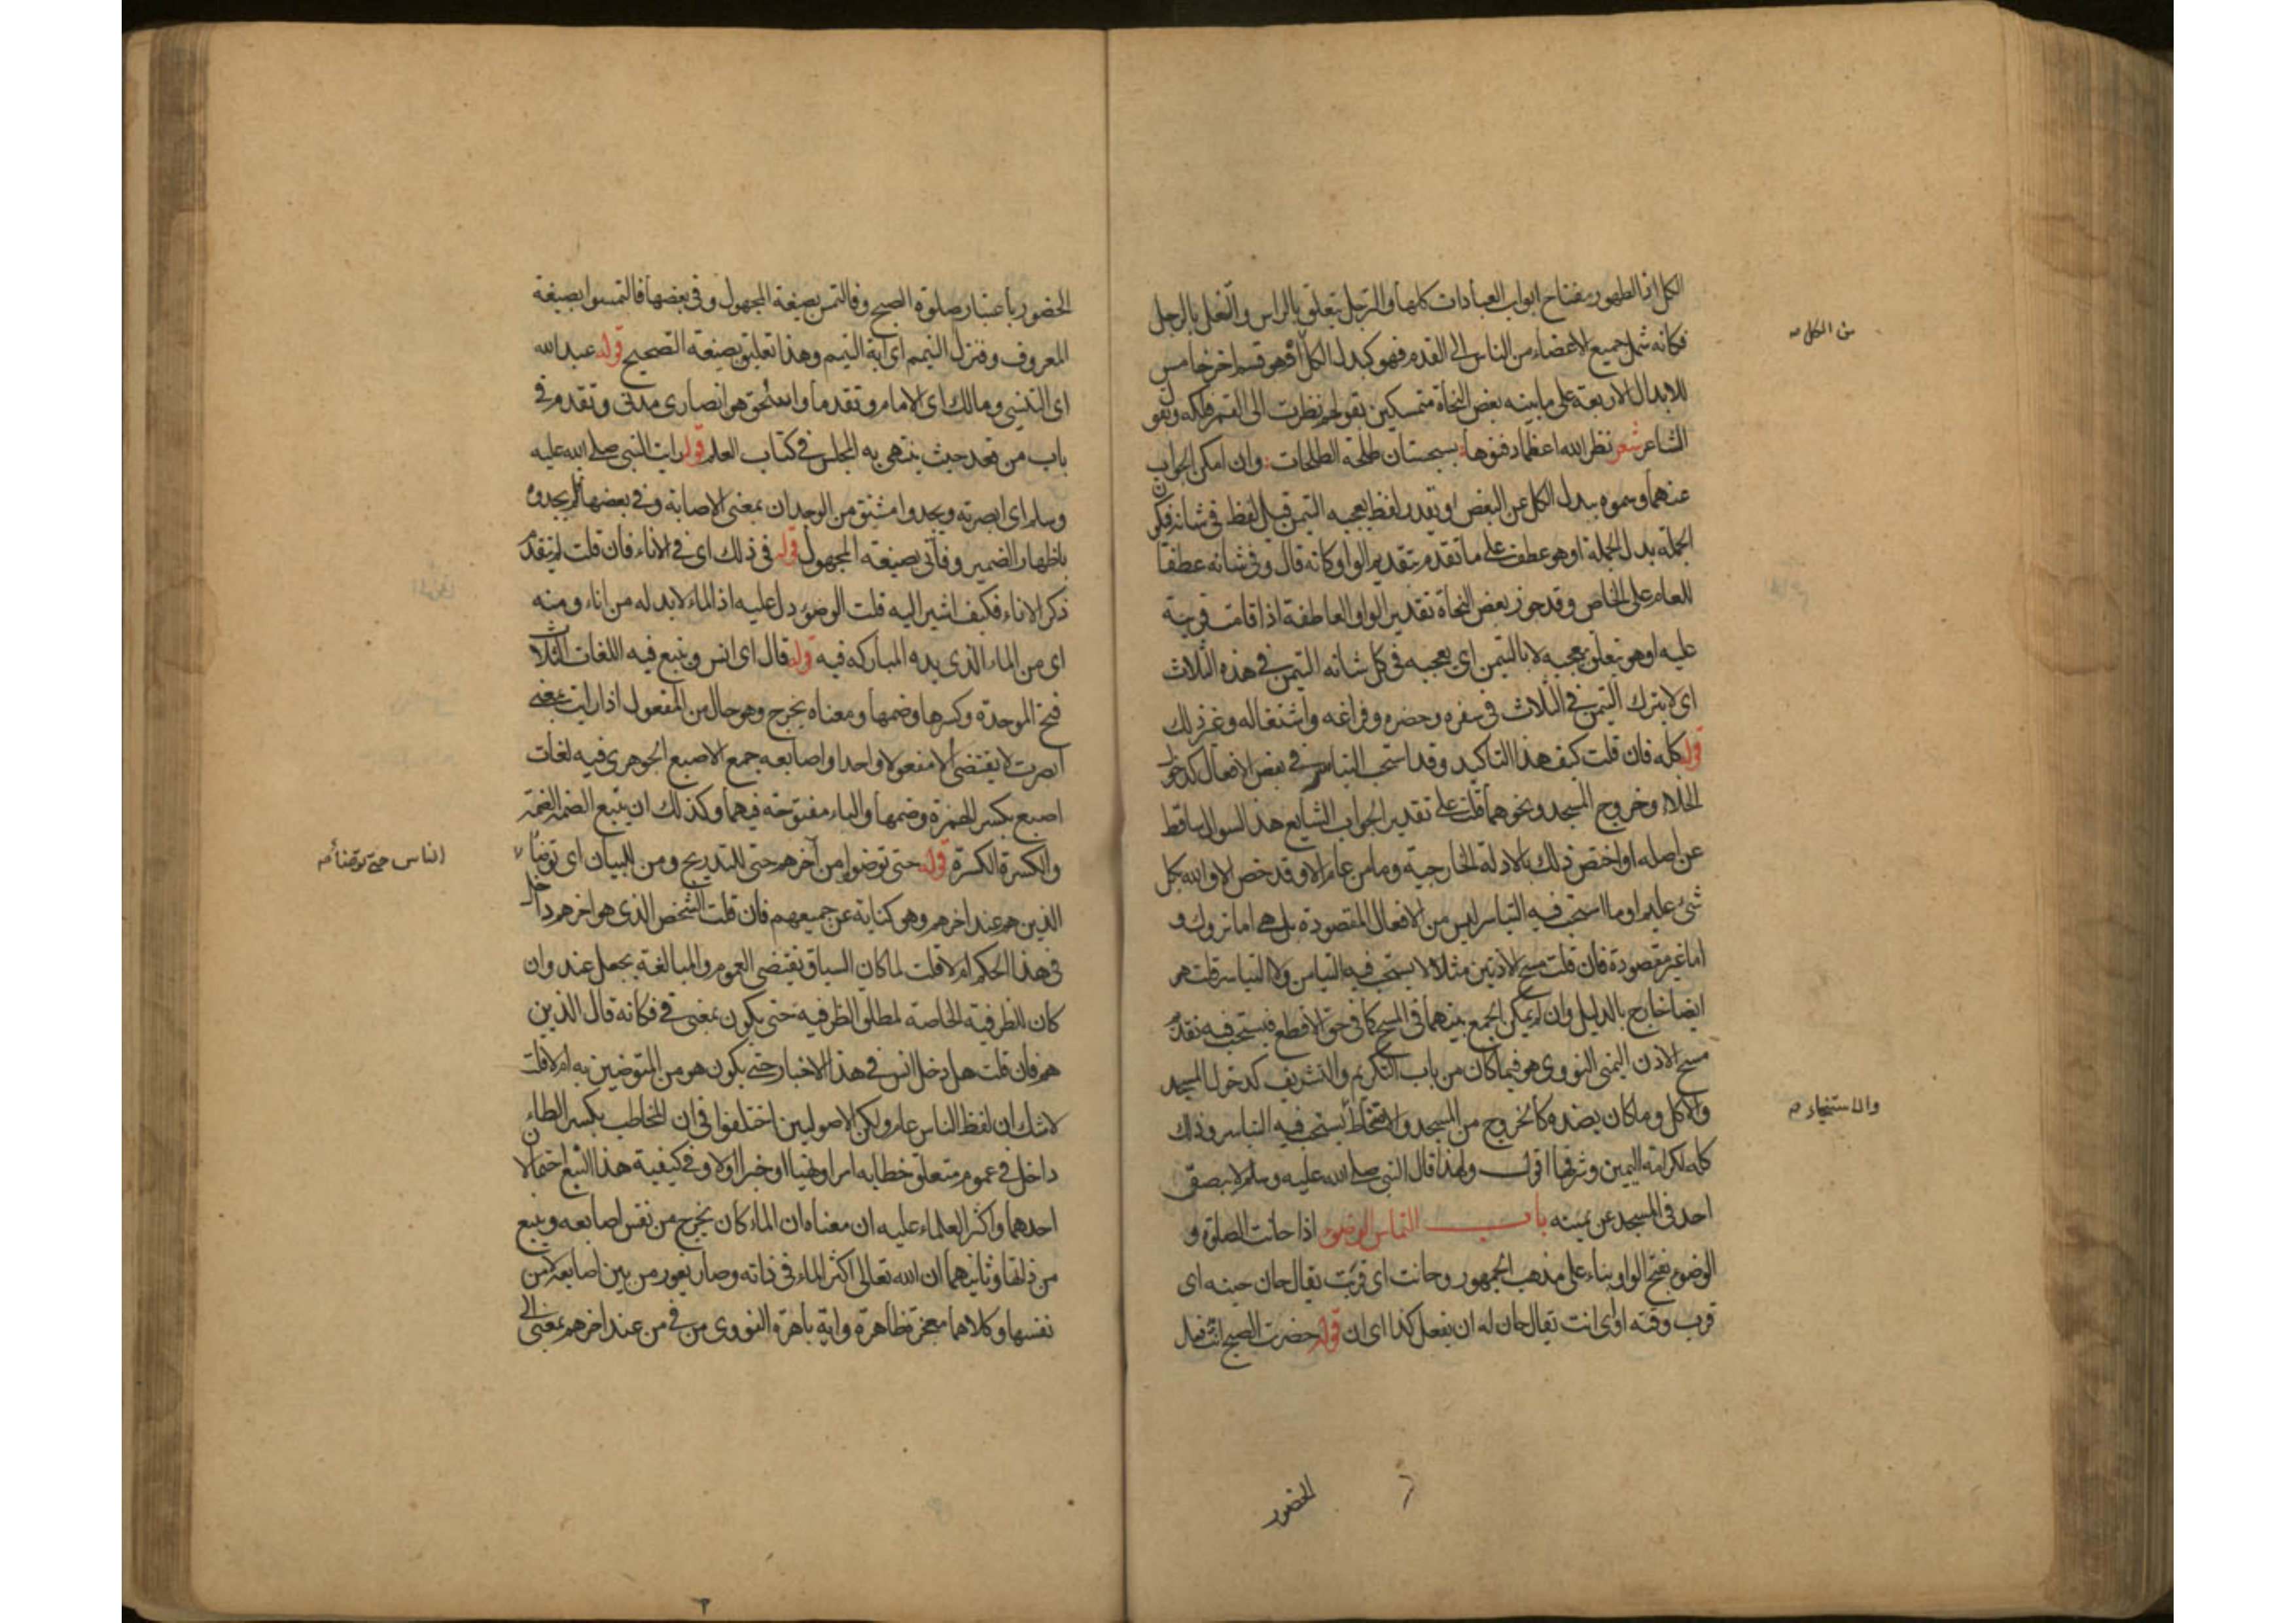 الكل اذ الطهور مفتاح ابواب العبادات كلها والترجل يتعلق بالراس والتنعل بالرجل
فكانه شمل جميع الاعضاء من الناس الى القدم فهو كبدل الكل او هو قسم اخر خامس
من الكل صح
للابدال الاربعة على ما بينه بعض النحاة متمسكين بقولهم نظرت الى القمر فلكه وبقو
الشاعر شعر نظر الله اعظما دفنوها بسجستان طلحة الطلحات وان امكن الجواب
عنهما وسموه ببدل الكل عن البعض او يقدر لفظ يعجبه التيمن قبل لفظ في شانه فيكون
الجملة بدل الجملة او هو عطف على ما تقدم بتقدير الواو كانه قال وفي شانه عطفا
للعام على الخاص وقد جوز بعض النحاة تقدير الواو العاطفة اذا قامت قرينة
عليه او هو يتعلق بيعجبه لا بالتيمن اي يعجبه في كل شانه التيمن في هذه الثلاث
اي لا يترك التيمن في الثلاث في سفره وحضره وفراغه واشتغاله وغير ذلك
قوله كله فان قلت كيف هذا التاكيد وقد استحب التياسر في بعض الافعال كدخول
الخلاء وخروج المسجد ونحوهما قلت على تقدير الجواب الشايع هذا السوال ساقط
عن اصله او اختص ذلك بالادلة الخارجية وما من عام الا وقد خص الا والله بكل
شيء عليم او ما استحب فيه التياسر ليس من الافعال المقصودة بل هي اما تروك و
اما غير مقصودة فان قلت مسح الاذنين مثلا لا يستحب فيه التيامن ولا التياسر قلت هو
ايضا خارج بالدليل وان لم يمكن الجمع بينهما في المسح كما في حق الاقطع فيستحب فيه تقدم
مسح الاذن اليمنى النووي هو فيما كان من باب التكريم والتشريف كدخول المسجد
والاكل وما كان بضده كالخروج من المسجد والامتخاط يستحب فيه التياسر وذلك
والاستنجاء صح
كله لكرامة اليمين وشرفها اقول ولهذا قال النبي صلى الله عليه وسلم لا يبصق
احد في المسجد عن يمينه باب التماس الوضوء اذا حانت الصلوة و
الوضوء بفتح الواو بناء على مذهب الجمهور وحانت اي قربت يقال حان حينه اي
قرب وقته او اي انت يقال حان له ان يفعل كذا اي ان قوله حضرت الصبح انث فعل
الحضور
الحضور باعتبار صلوة الصبح وفالتمس بصيغة المجهول وفي بعضها فالتمسوا بصيغة
المعروف وفنزل التيمم اي آية التيمم وهذا تعليق بصيغة التصحيح قوله عبد الله
اي التنيسي ومالك اي الامام وتقدما واسحق هو انصاري مدني وتقدم في
باب من قعد حيث ينتهي به المجلس في كتاب العلم قوله رايت النبي صلى الله عليه
وسلم اي ابصرته ويجدوا مشتق من الوجدان بمعنى الاصابة وفي بعضها فلم يجدوه
باظهار الضمير وفأتي بصيغة المجهول قوله في ذلك اي في الاناء فان قلت لم يتقدم
ذكر الاناء فكيف اشير اليه قلت الوضوء دل عليه اذ الماء لا بد له من اناء ومنه
اي من الماء الذي يده المباركه فيه قوله قال اي انس وينبع فيه اللغات الثلاث
فتح الموحدة وكسرها وضمها ومعناه يخرج وهو حال من المفعول اذ رايت بمعنى
ابصرت لا يقتضي الا مفعولا واحدا واصابعه جمع الاصبع الجوهري فيه لغات
اصبع بكسر الهمزة وضمها والباء مفتوحة فيهما وكذلك ان يتبع الضمة الضمة
والكسرة الكسرة قوله حتى توضوا من آخرهم حتى للتدريج ومن للبيان اي توضأ
الناس حتى توضأ صح
الذين هم عند اخرهم وهو كناية عن جميعهم فان قلت الشخص الذي هو اخرهم داخل
في هذا الحكم ام لا قلت لما كان السياق يقتضي العموم والمبالغة بجعل عند وان
كان للظرفية الخاصة لمطلق الظرفية حتى يكون بمعنى في فكانه قال الذين
هم فان قلت هل دخل انس في هذا الاخبار حتى يكون هو من المتوضين به ام لا قلت
لا شك ان لفظ الناس عام ولكن الاصوليين اختلفوا في ان المخاطب بكسر الطاء
داخل في عموم متعلق خطابه امرا او نهيا او خبرا او لا وفي كيفية هذا النبع احتمالان
احدهما واكثر العلماء عليه ان معناه ان الماء كان يخرج من نفس اصابعه وينبع
من ذاتها وثانيهما ان الله تعالى اكثر الماء في ذاته وصار يفور من بين اصابعه لا من
نفسها وكلاهما معجزة ظاهرة واية باهرة النووي من في من عند اخرهم بمعنى الى